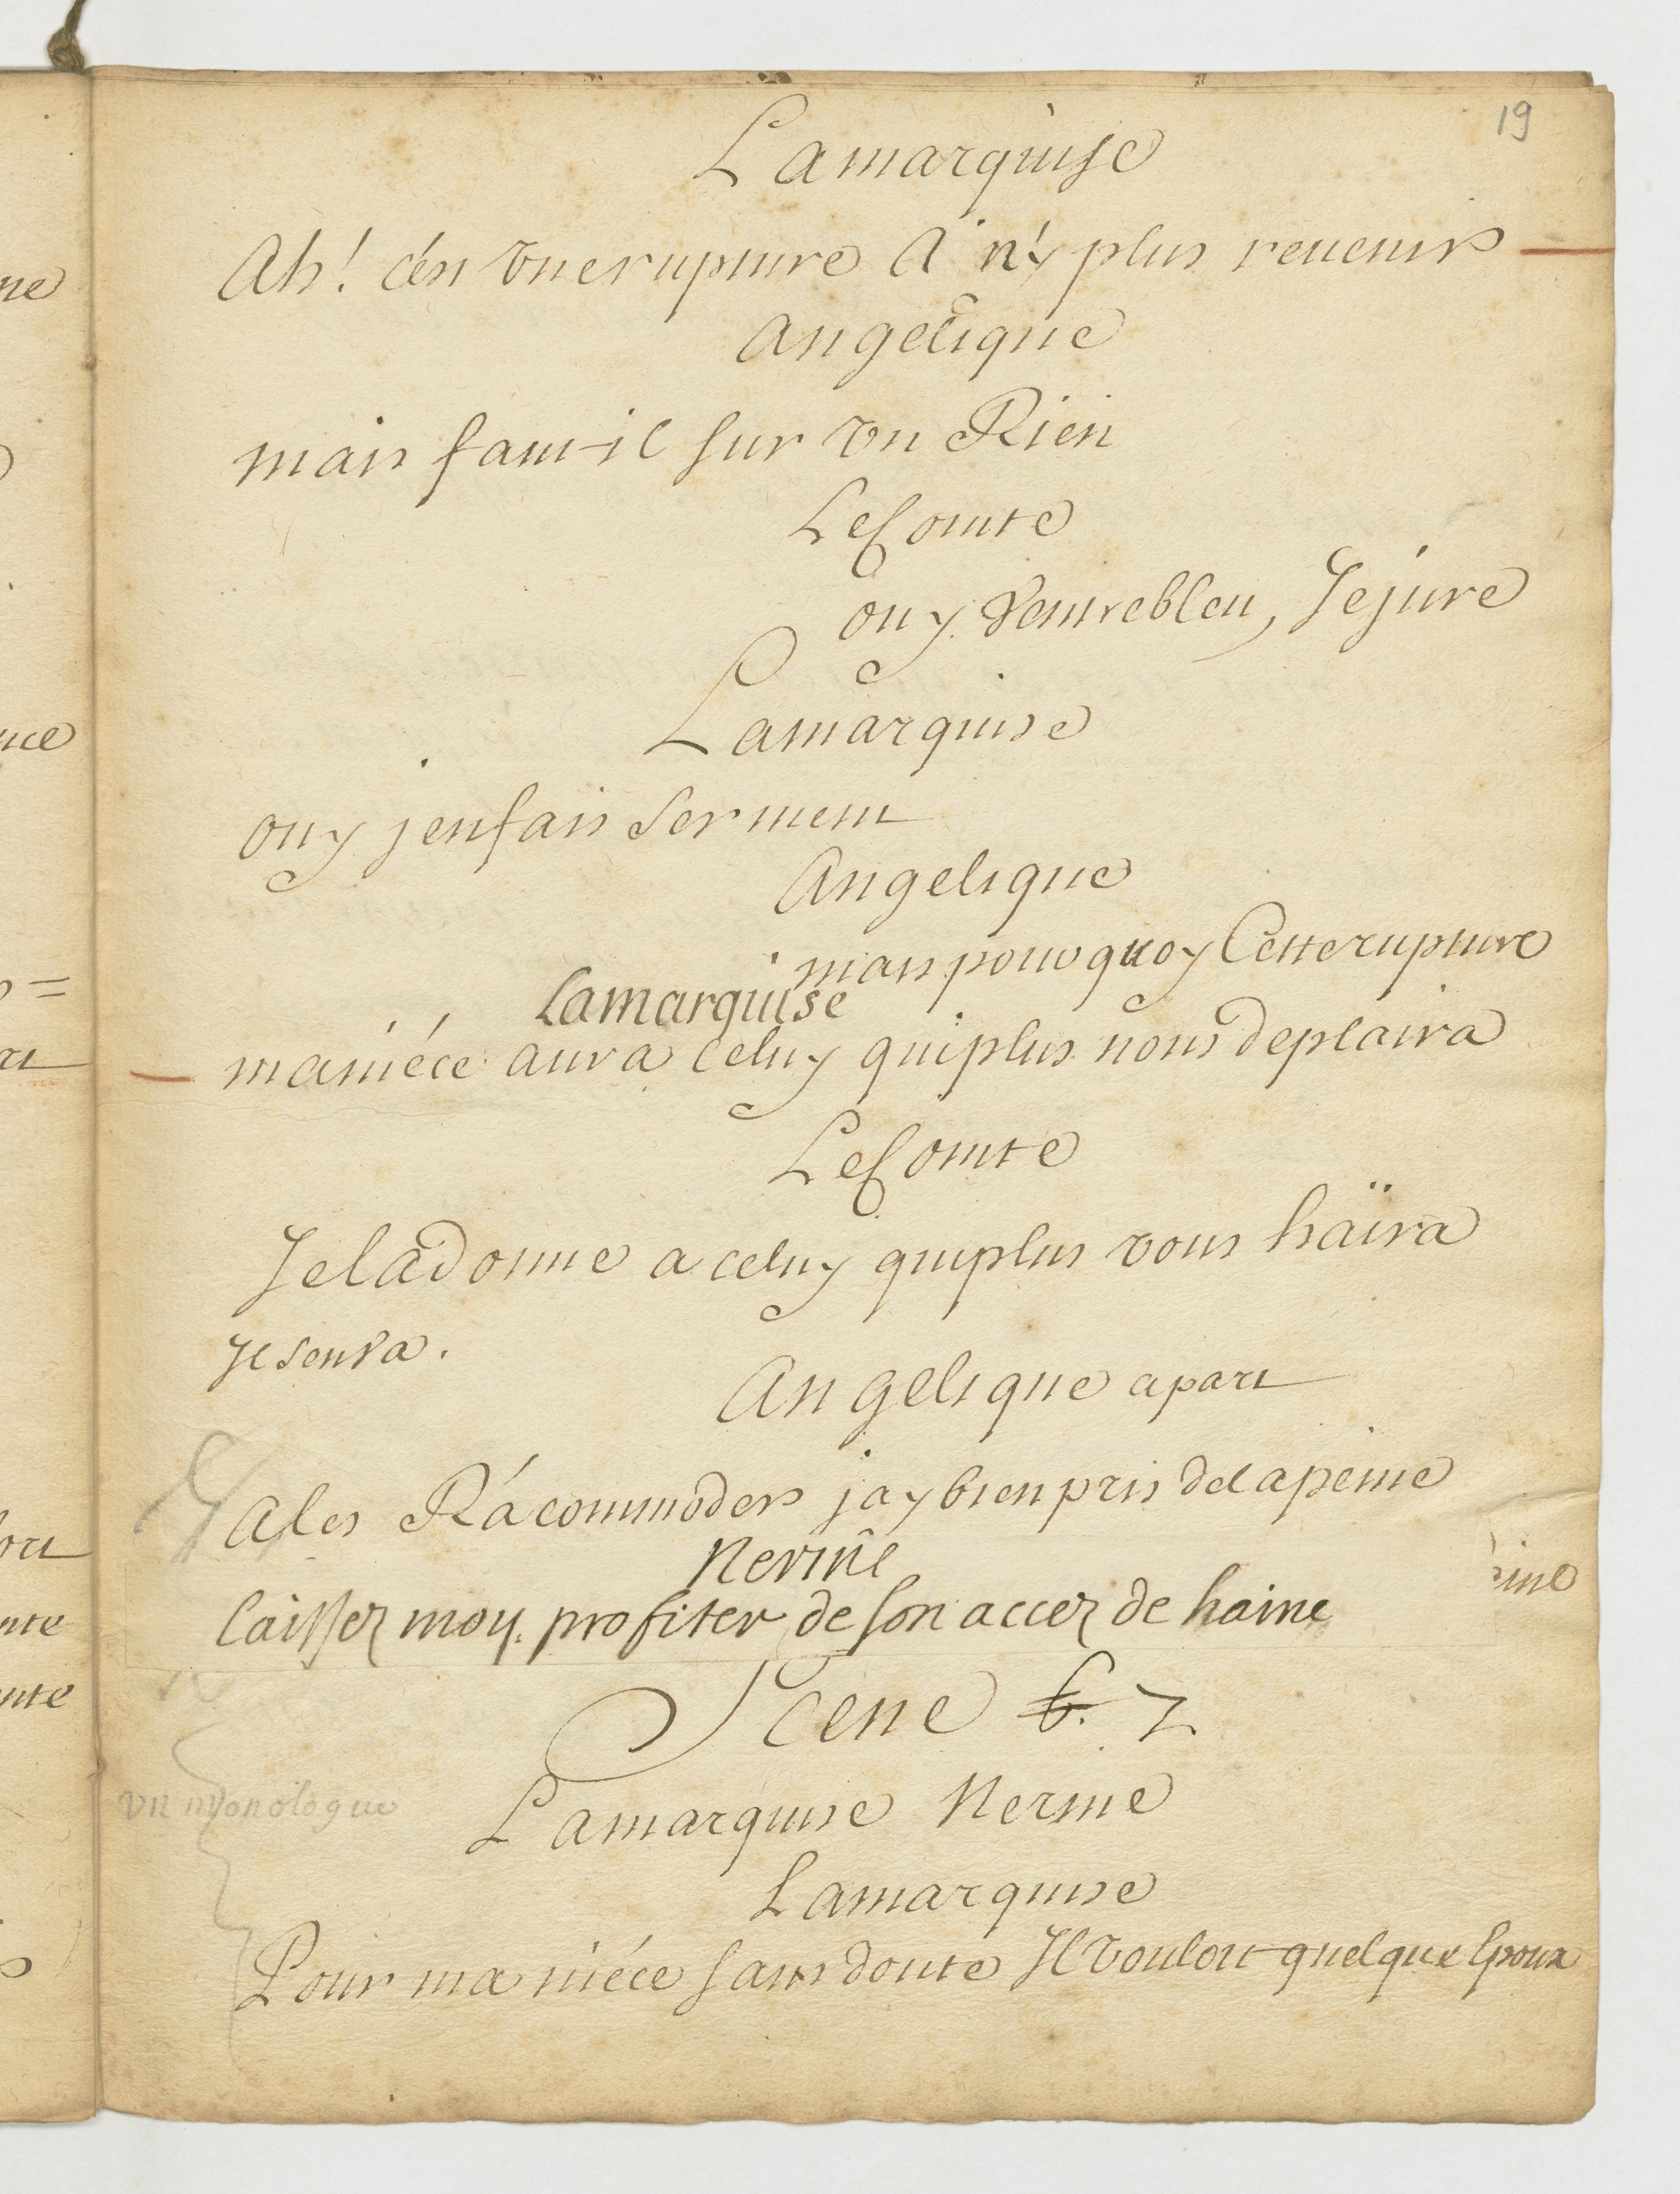 19
Lamarquise
Ah! c'est une rupture A n'y plus reuenir
Angelique
mais faut-il sur un Rien
LeComte
ouy Ventrebleu, Jejure
Lamarquise
ouy jenfais serment
Angelique
mais pourquoy Cette rupture
Lamarquise
maniéce aura celuy quiplus nous deplaira
LeComte
Jeladonne a celuy quiplus vous haïra
Il senva.
Angelique apart
Ales Racommoder jay bien pris delapeine
Nerine
laissez moy profiter de son accez de haine
eine
Scene 6. 7
Lamarquise Nerine
un monologue
Lamarquise
Pour ma niéce sans doute Il vouloit quelque Epoux